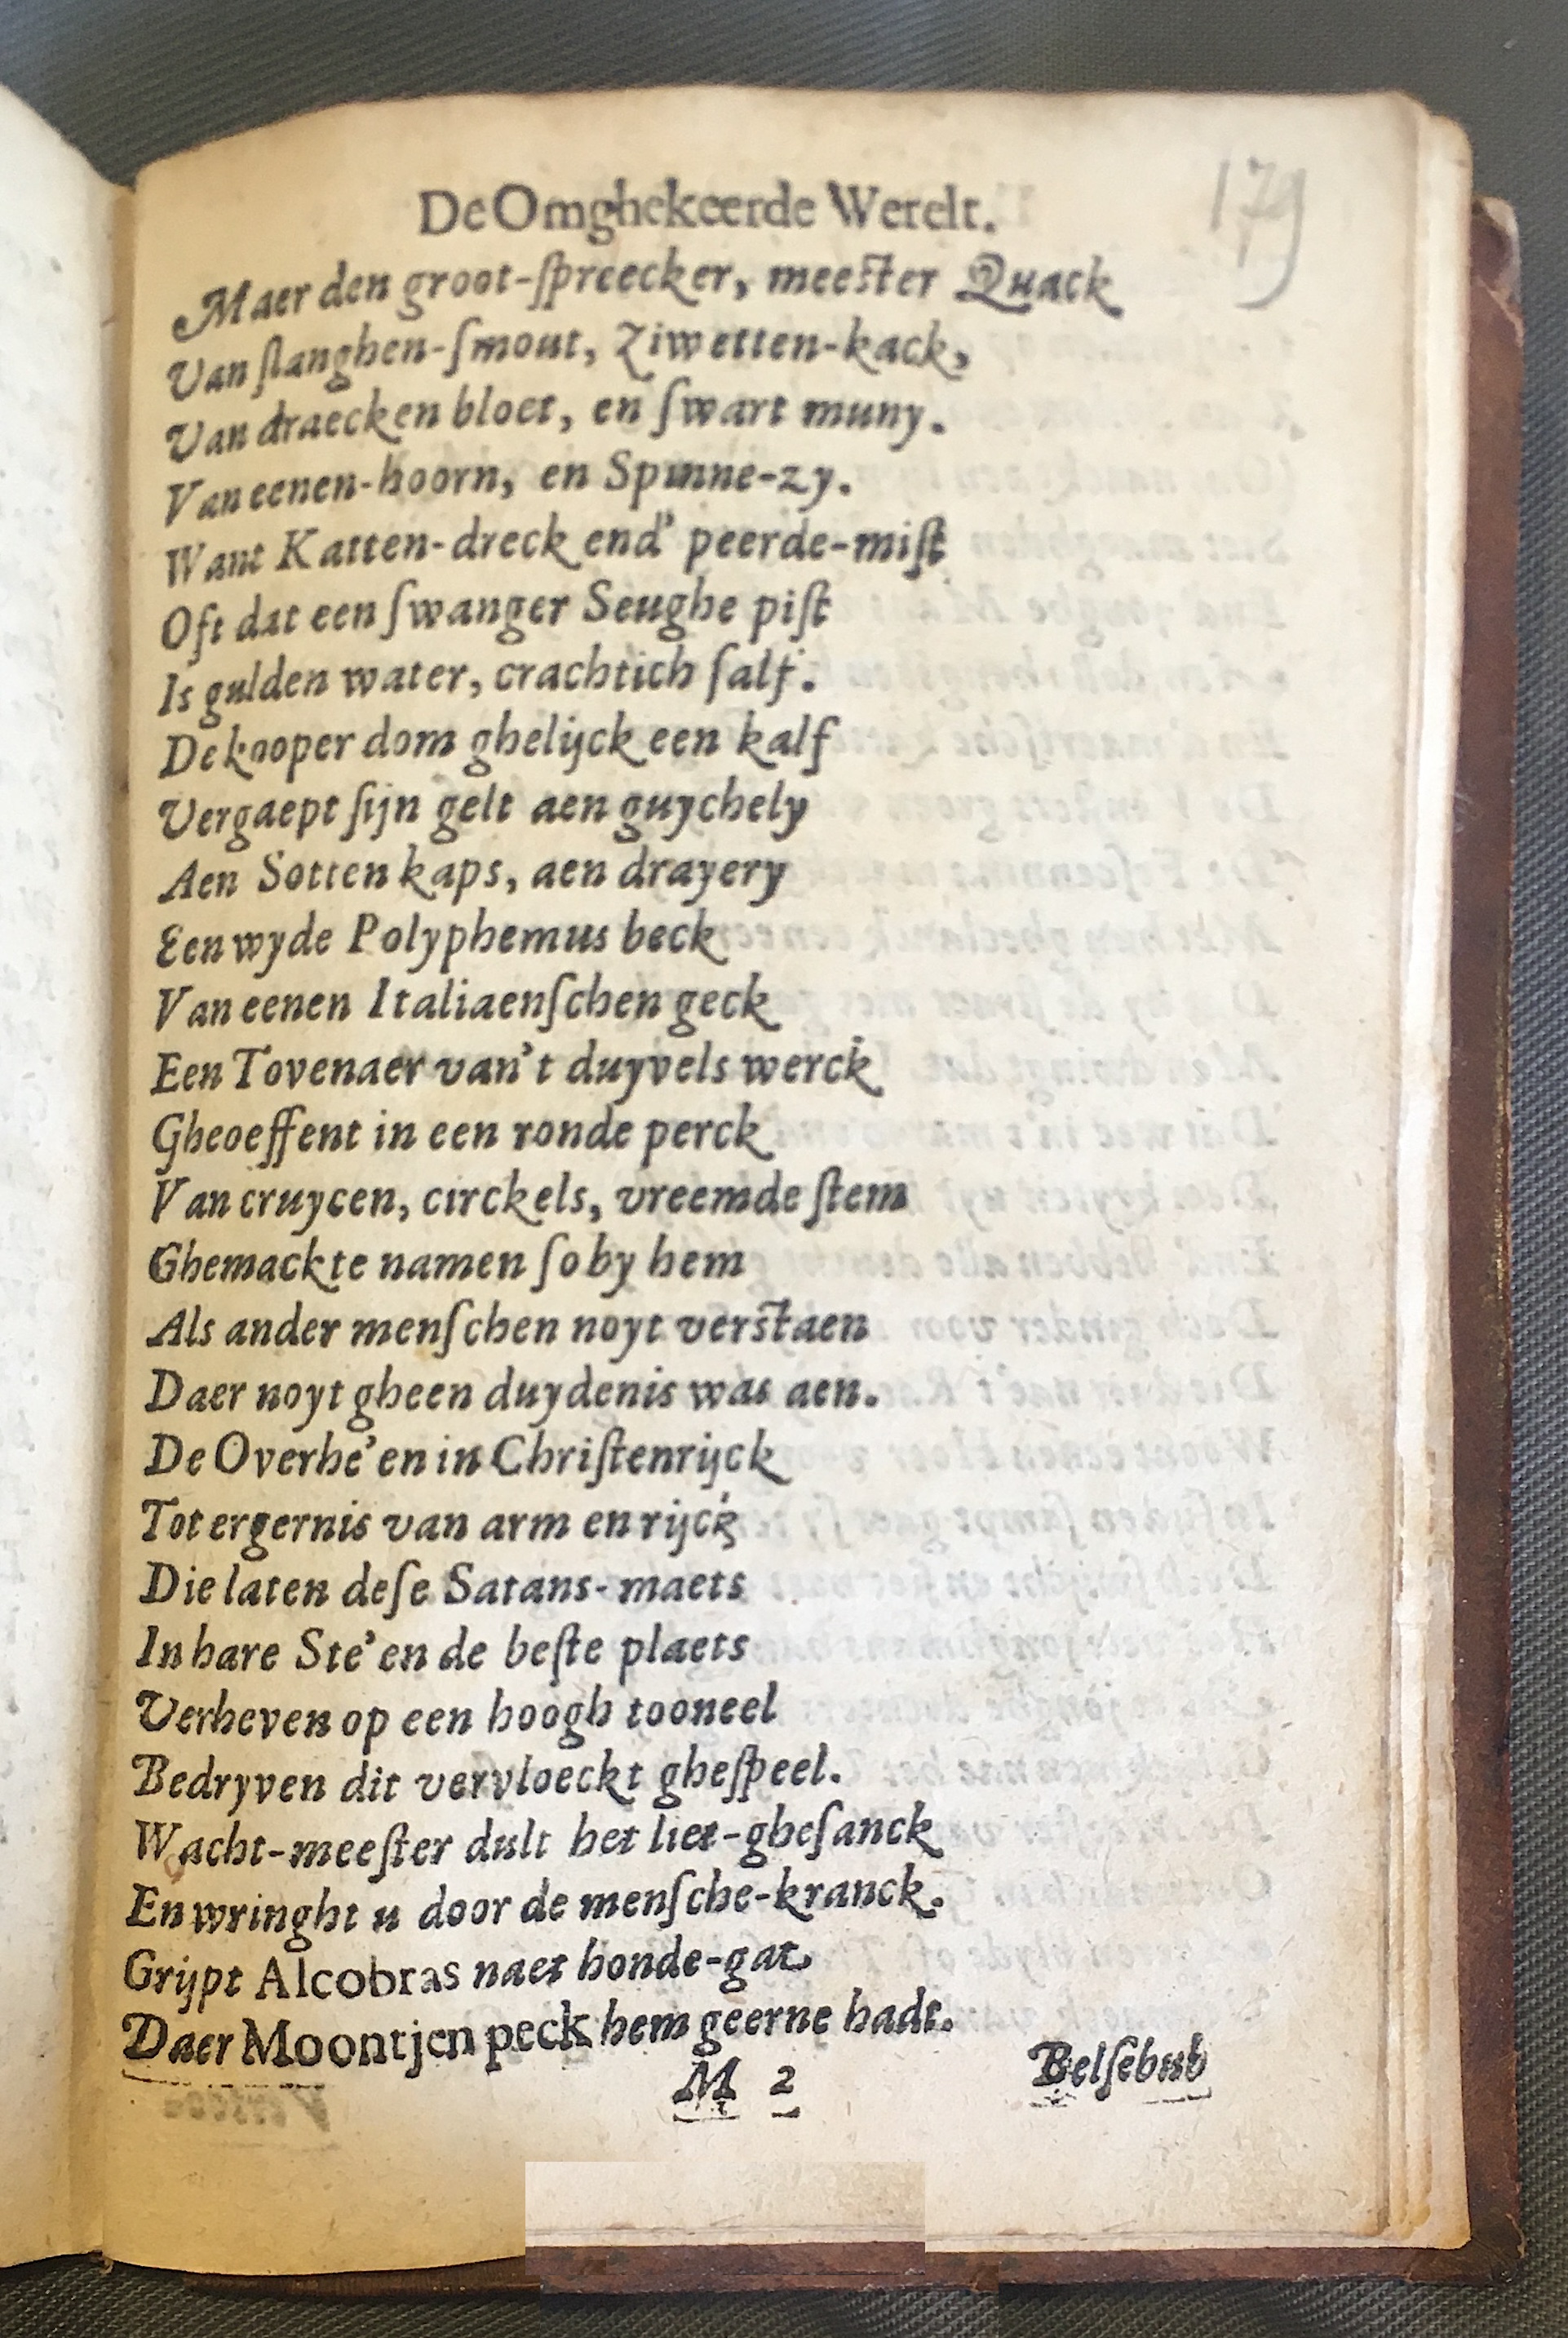 179
De Omghekeerde Werelt.
Maer den groot-ſpreecker, meeſter Quack
Van ſlanghen-ſmout, Ziwetten-kack,
Van draecken bloet, en ſwart muny.
Van eenen-hoorn, en Spinne-zy.
Want Katten-dreck end' peerde-miſt
Oft dat een ſwanger Seughe piſt
Is gulden water, crachtich ſalf.
De kooper dom ghelijck een kalf
Vergaept ſijn gelt aen guychely
Aen Sotten kaps, aen drayery
Een wyde Polyphemus beck
Van eenen Italiaenſchen geck
Een Tovenaer van't duyvels werck
Gheoeffent in een ronde perck
Van cruycen, circkels, vreemde ſtem
Ghemackte namen ſo by hem
Als ander menſchen noyt verſtaen
Daer noyt gheen duydenis was aen.
De Overhe'en in Chriſtenrijck
Tot ergernis van arm en rijck
Die laten deſe Satans-maets
In hare Ste'en de beſte plaets
Verheven op een hoogh tooneel
Bedryven dit vervloeckt gheſpeel.
Wacht-meeſter dult het liet-gheſanck
En wringht u door de menſche-kranck.
Grijpt Alcobras naet honde-gat
Daer Moontjen peck hem geerne hadt.
M 2
Belſebub